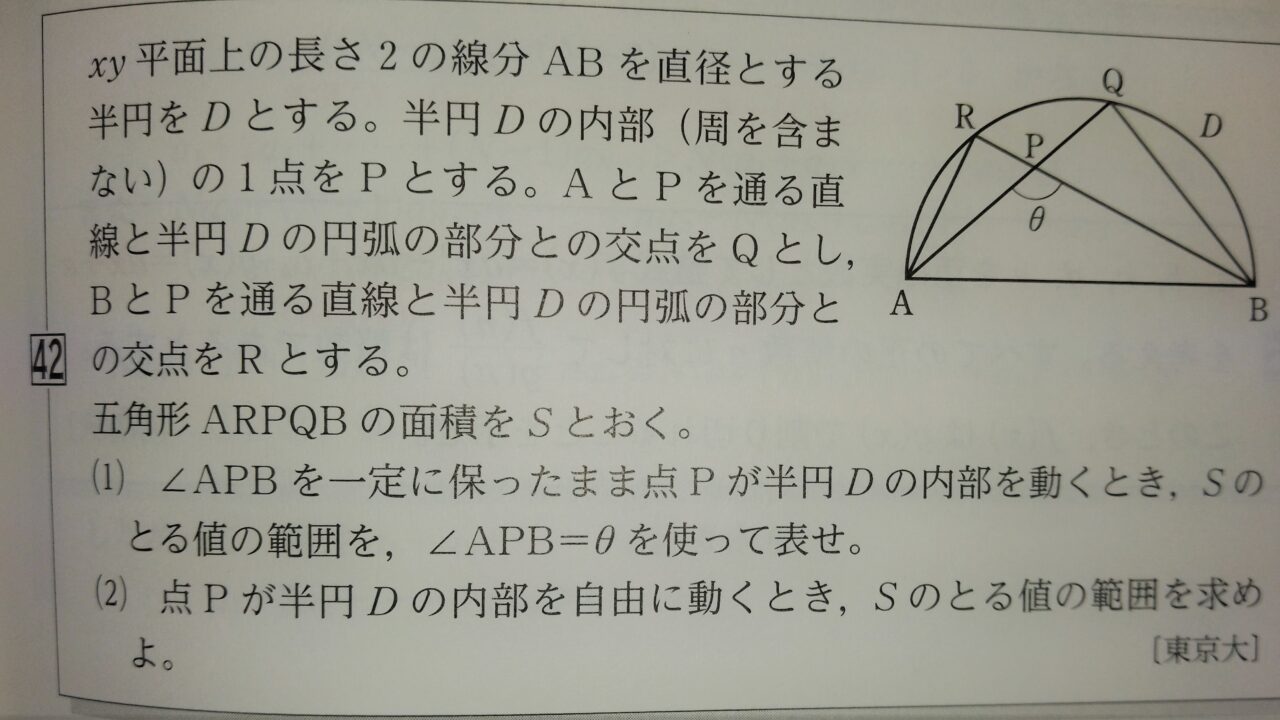 xy平面上の長さ2の線分ABを直径とする
半円をDとする。半円Dの内部(周を含ま
ない)の1点をPとする。AとPを通る直
線と半円Dの円弧の部分との交点をQとし,
BとPを通る直線と半円Dの円弧の部分と
の交点をRとする。
42
五角形ARPQBの面積をSとおく。
(1) ∠APBを一定に保ったまま点Pが半円Dの内部を動くとき, Sの
とる値の範囲を, ∠APB=θを使って表せ。
(2) 点Pが半円Dの内部を自由に動くとき, Sのとる値の範囲を求め
よ。
[東京大]
Q
R
D
P
θ
A
B